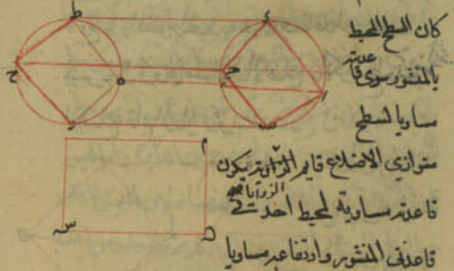 كان السطح المحيط
بالمنشور سوى قا
عدته
مساويا لسطح
متوازي الاضلاع قايم الزوايا يكون
الزوايا صح
قاعدته مساوية لمحيط احدى
قاعدتي المنشور وارتفاعه مساويا
ط
ح
ه
ر
ء
ا
م